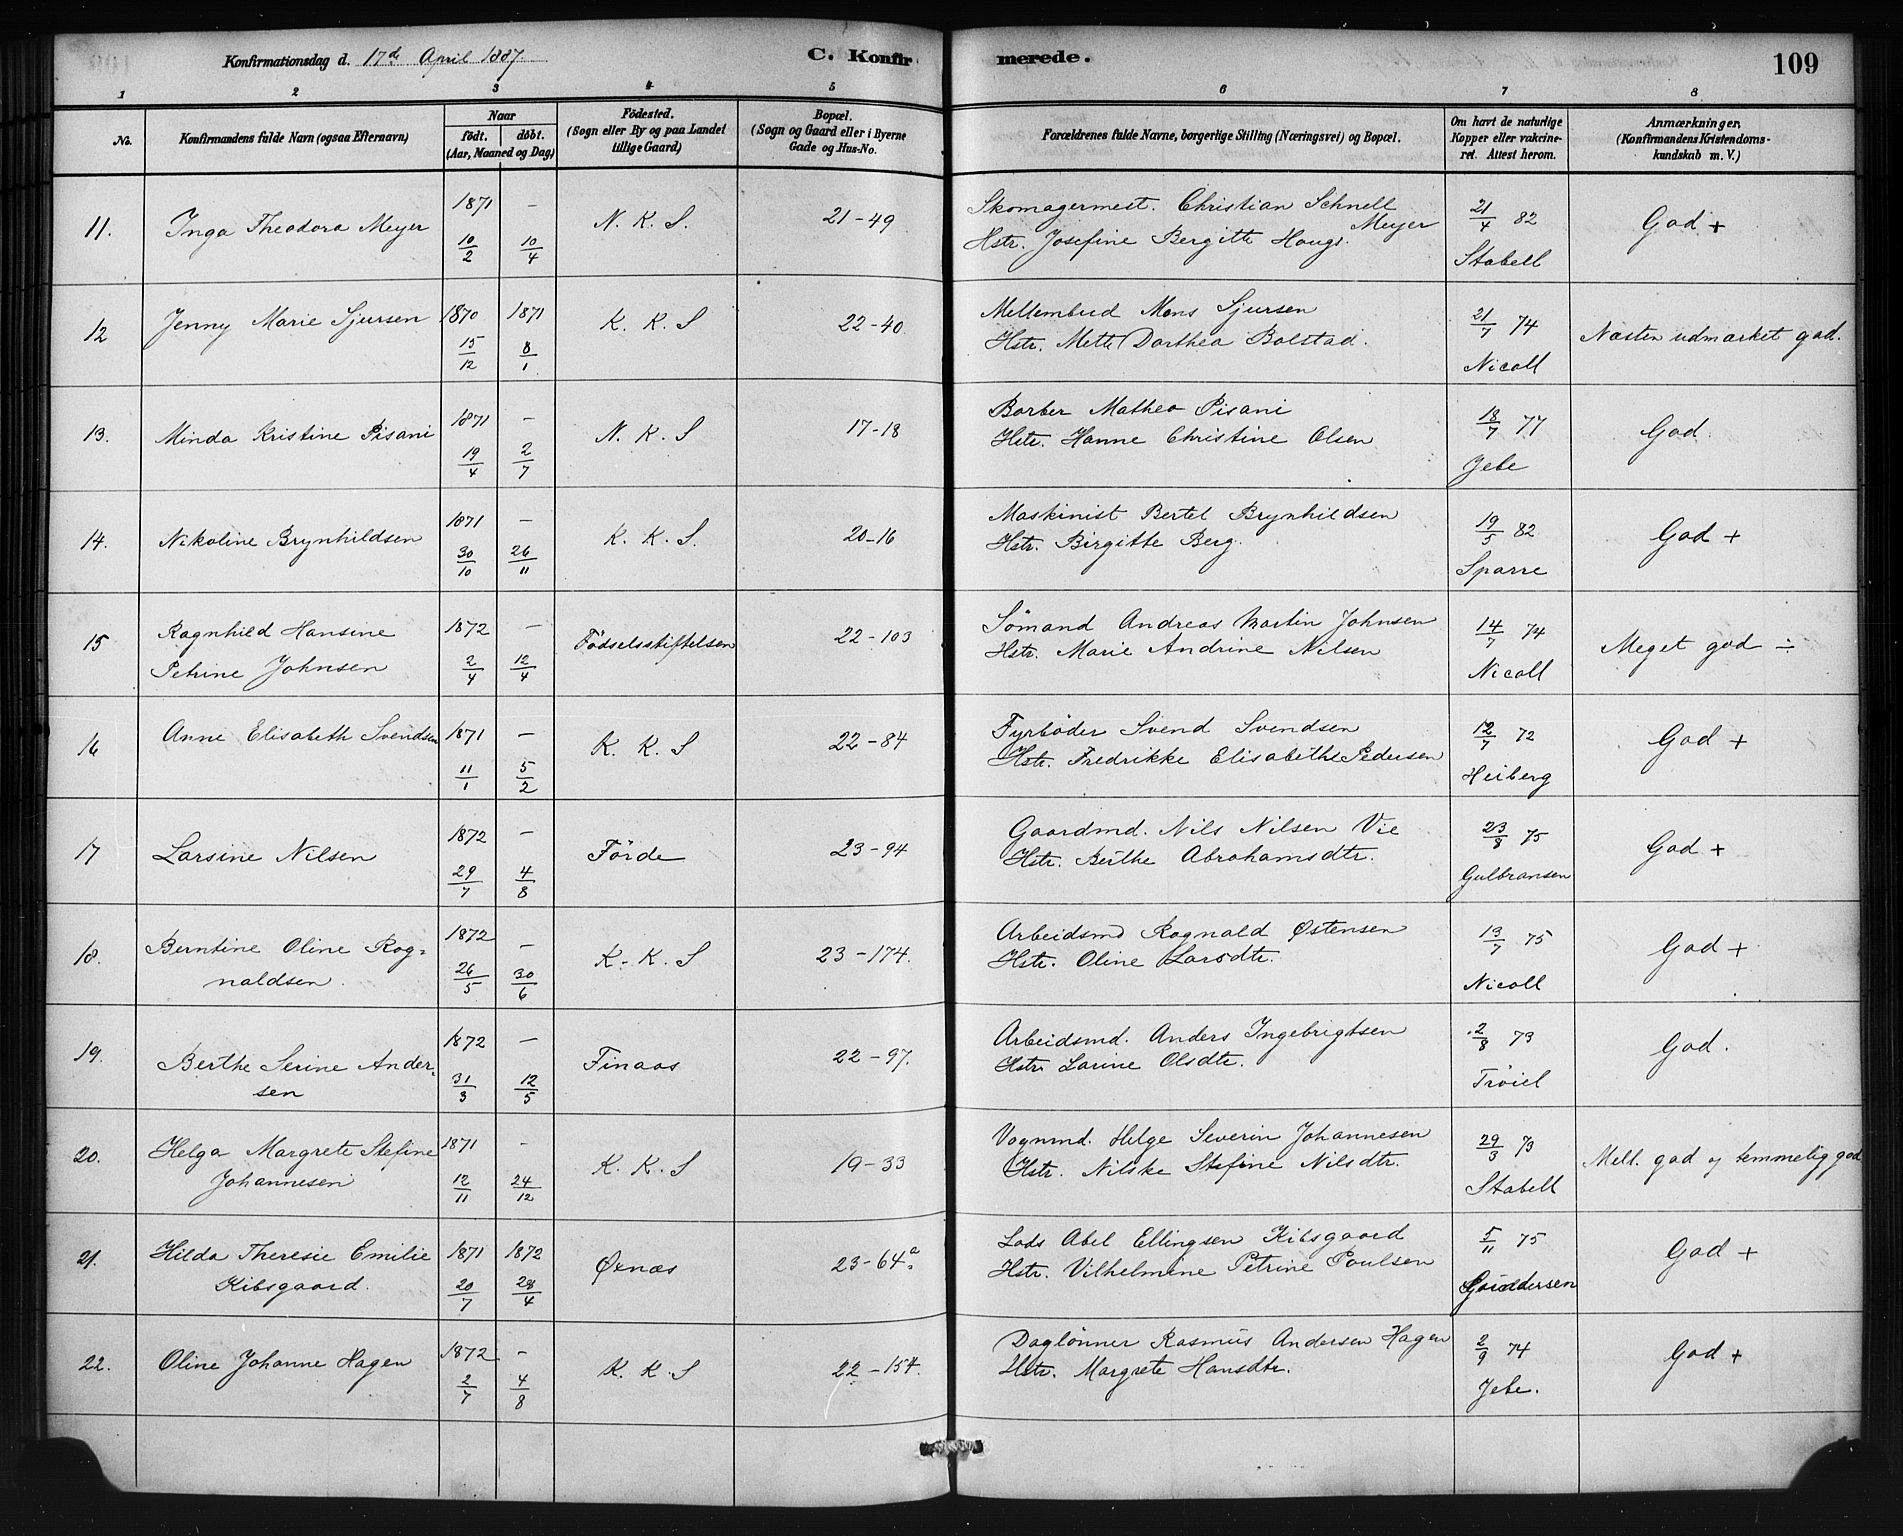 Konfirmationsdag d. 17de April 1887. C. Konfirmerede. 109
1 2 3 4 5 6 7 8
No. Konfirmandens fulde Navn (ogsaa Efternavn) Naar født. døbt. (Aar, Maaned og Dag) Fødested. (Sogn eller By og paa Landet tillige Gaard) Bopæl. (Sogn og Gaard eller i Byerne Gade og Hus-No. Forældrenes fulde Navne, borgerlige Stilling (Næringsvei) og Bopæl. Om havt de naturlige Kopper eller vakcineret. Attest herom. Anmærkninger, (Konfirmandens Kristendomskundskab m. V.)
11. Inga Theodora Meyer 1871 10/2 – 10/4 N. K. S. 21-49 Skomagermest. Christian Schnell Meyer
Hstr. Josefine Bergitte Haugs. 21/4 82 Stabell God +
12 Jenny Marie Sjursen 1870 15/12 1871 8/1 K. K. S 22-40 Mellembud Mons Sjursen
Hstr. Mette Dorthea Bolstad. 21/7 74 Nicoll Næsten udmærket god.
13. Minda Kristine Pisani 1871 19/4 – 2/7 N. K. S 17-18 Barber Matheo Pisani
Hstr. Hanne Christine Olsen 18/7 77 Jebe God
14. Nikoline Brynhildsen 1871 30/10 – 26/11 K. K. S. 20-16 Maskinist Bertel Brynhildsen
Hstr. Birgitte Berg. 19/5 82 Sparre God +
15 Ragnhild Hansine
Petrine Johnsen 1872 2/4 – 12/4 Fødselsstiftelsen 22-103 Sømand Andreas Martin Johnsen
Hstr. Marie Andrine Nilsen 14/7 74 Nicoll Meget god ÷
16 Anne Elisabeth Svendsen 1871 11/1 – 5/2 K. K. S 22-84 Fyrbøder Svend Svendsen
Hstr. Fredrikke Elisabethe Pedersen 12/7 72 Heiberg God +
17 Larsine Nilsen 1872 29/7 – 4/8 Førde 23-94 Gaardmd. Nils Nilsen Vie
Hstr. Berthe Abrahamsdtr. 23/8 75 Gulbransen God +
18. Berntine Oline Rag=
naldsen. 1872 26/5 – 30/6 K. K. S 23-174. Arbeidsmd Ragnald Østensen
Hstr. Oline Larsdtr. 13/7 75 Nicoll God +
19. Berthe Serine Ander=
sen 1872 31/3 – 12/5 Finaas 22-97. Arbeidsmd. Anders Ingebrigtsen
Hstr Larine Olsdtr. 2/8 73 Trøiel God.
20. Helga Margrete Stefine
Johannesen 1871 12/11 – 24/12 K. K. S 19-33 Vognmd. Helge Severin Johannesen
Hstr. Nilske Stefine Nilsdtr. 29/3 73 Stabell Mell. god og temmelig god
21. Hilda Theresie Emilie
Kibsgaard. 1871 20/7 1872 28/4 Øxnæs 23-64a. Lods Abel Ellingsen Kibsgaard
Hstr. Vilhelmine Petrine Poulsen 5/11 75 God +
22. Oline Johanne Hagen 1872 2/7 – 4/8 K. K. S 22-154. Daglønner Rasmus Andersen Hagen
Hstr. Margrete Hansdtr. 2/9 74 Jebe. God +